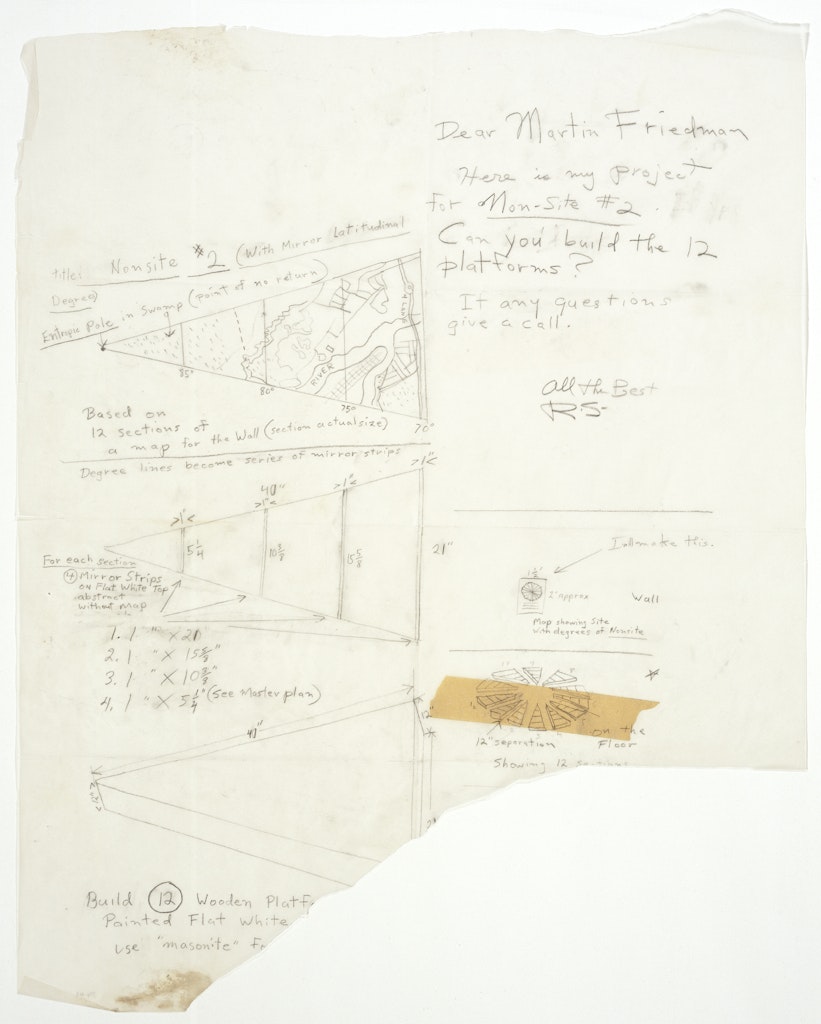 Dear Martin Friedman
Here is my project
for Non-Site #2.
Can you build the 12
platforms?
If any questions
give a call.
All the Best
R.S.
title: Nonsite #2 (With Mirror Latitudinal
Degree)
Entropic Pole in Swamp (point of no return)
85°
80°
RIVER
75°
70°
Based on
12 sections of
a map for the Wall (section actual size)
Degree lines become series of mirror strips
40"
>1"<
>1"<
>1"<
>1"<
5 1/4
10 3/8
15 5/8
21"
For each section
4 Mirror Strips
on Flat White Top
abstract
without map
1. 1 " X 21
2. 1 " X 15 5/8"
3. 1 " X 10 3/8"
4. 1 " X 5 1/4" (See Master plan)
I'll make this.
2' approx
Wall
Map showing Site
with degrees of Nonsite
12" separation
on the
Floor
Showing 12
41"
12"
<12"
Build 12 Wooden Platf
Painted Flat White
use "masonite"